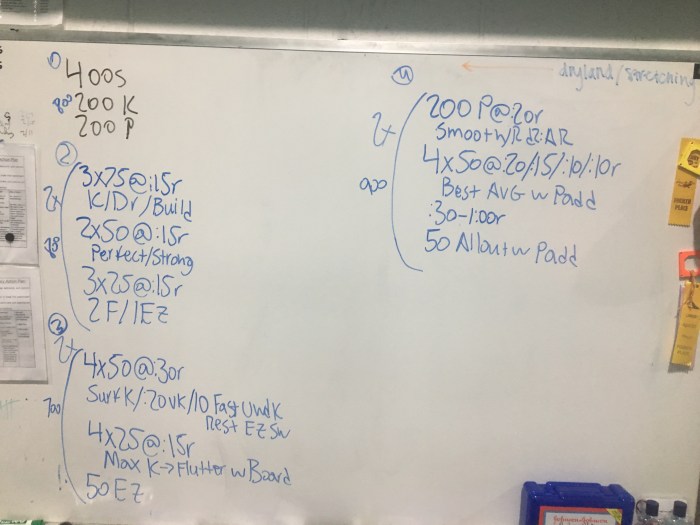 ①
400s
800 200 K
200 P
②
2x
3x75@:15r
K/Dr/Build
2x50@:15r
Perfect/Strong
3x25@:15r
2F/1EZ
③
2x
4x50@:30r
Surf K/:20VK/10 Fast Und K
Rest EZ Sw
700
4x25@:15r
Max K→Flutter w Board
50 EZ
④
← dryland/stretching
2x
200 P@:20r
4x50@:20/:15/:10/:10r
900
Best AVG w Padd
:30-1:00r
50 Allout w Padd
Johnson & Johnson